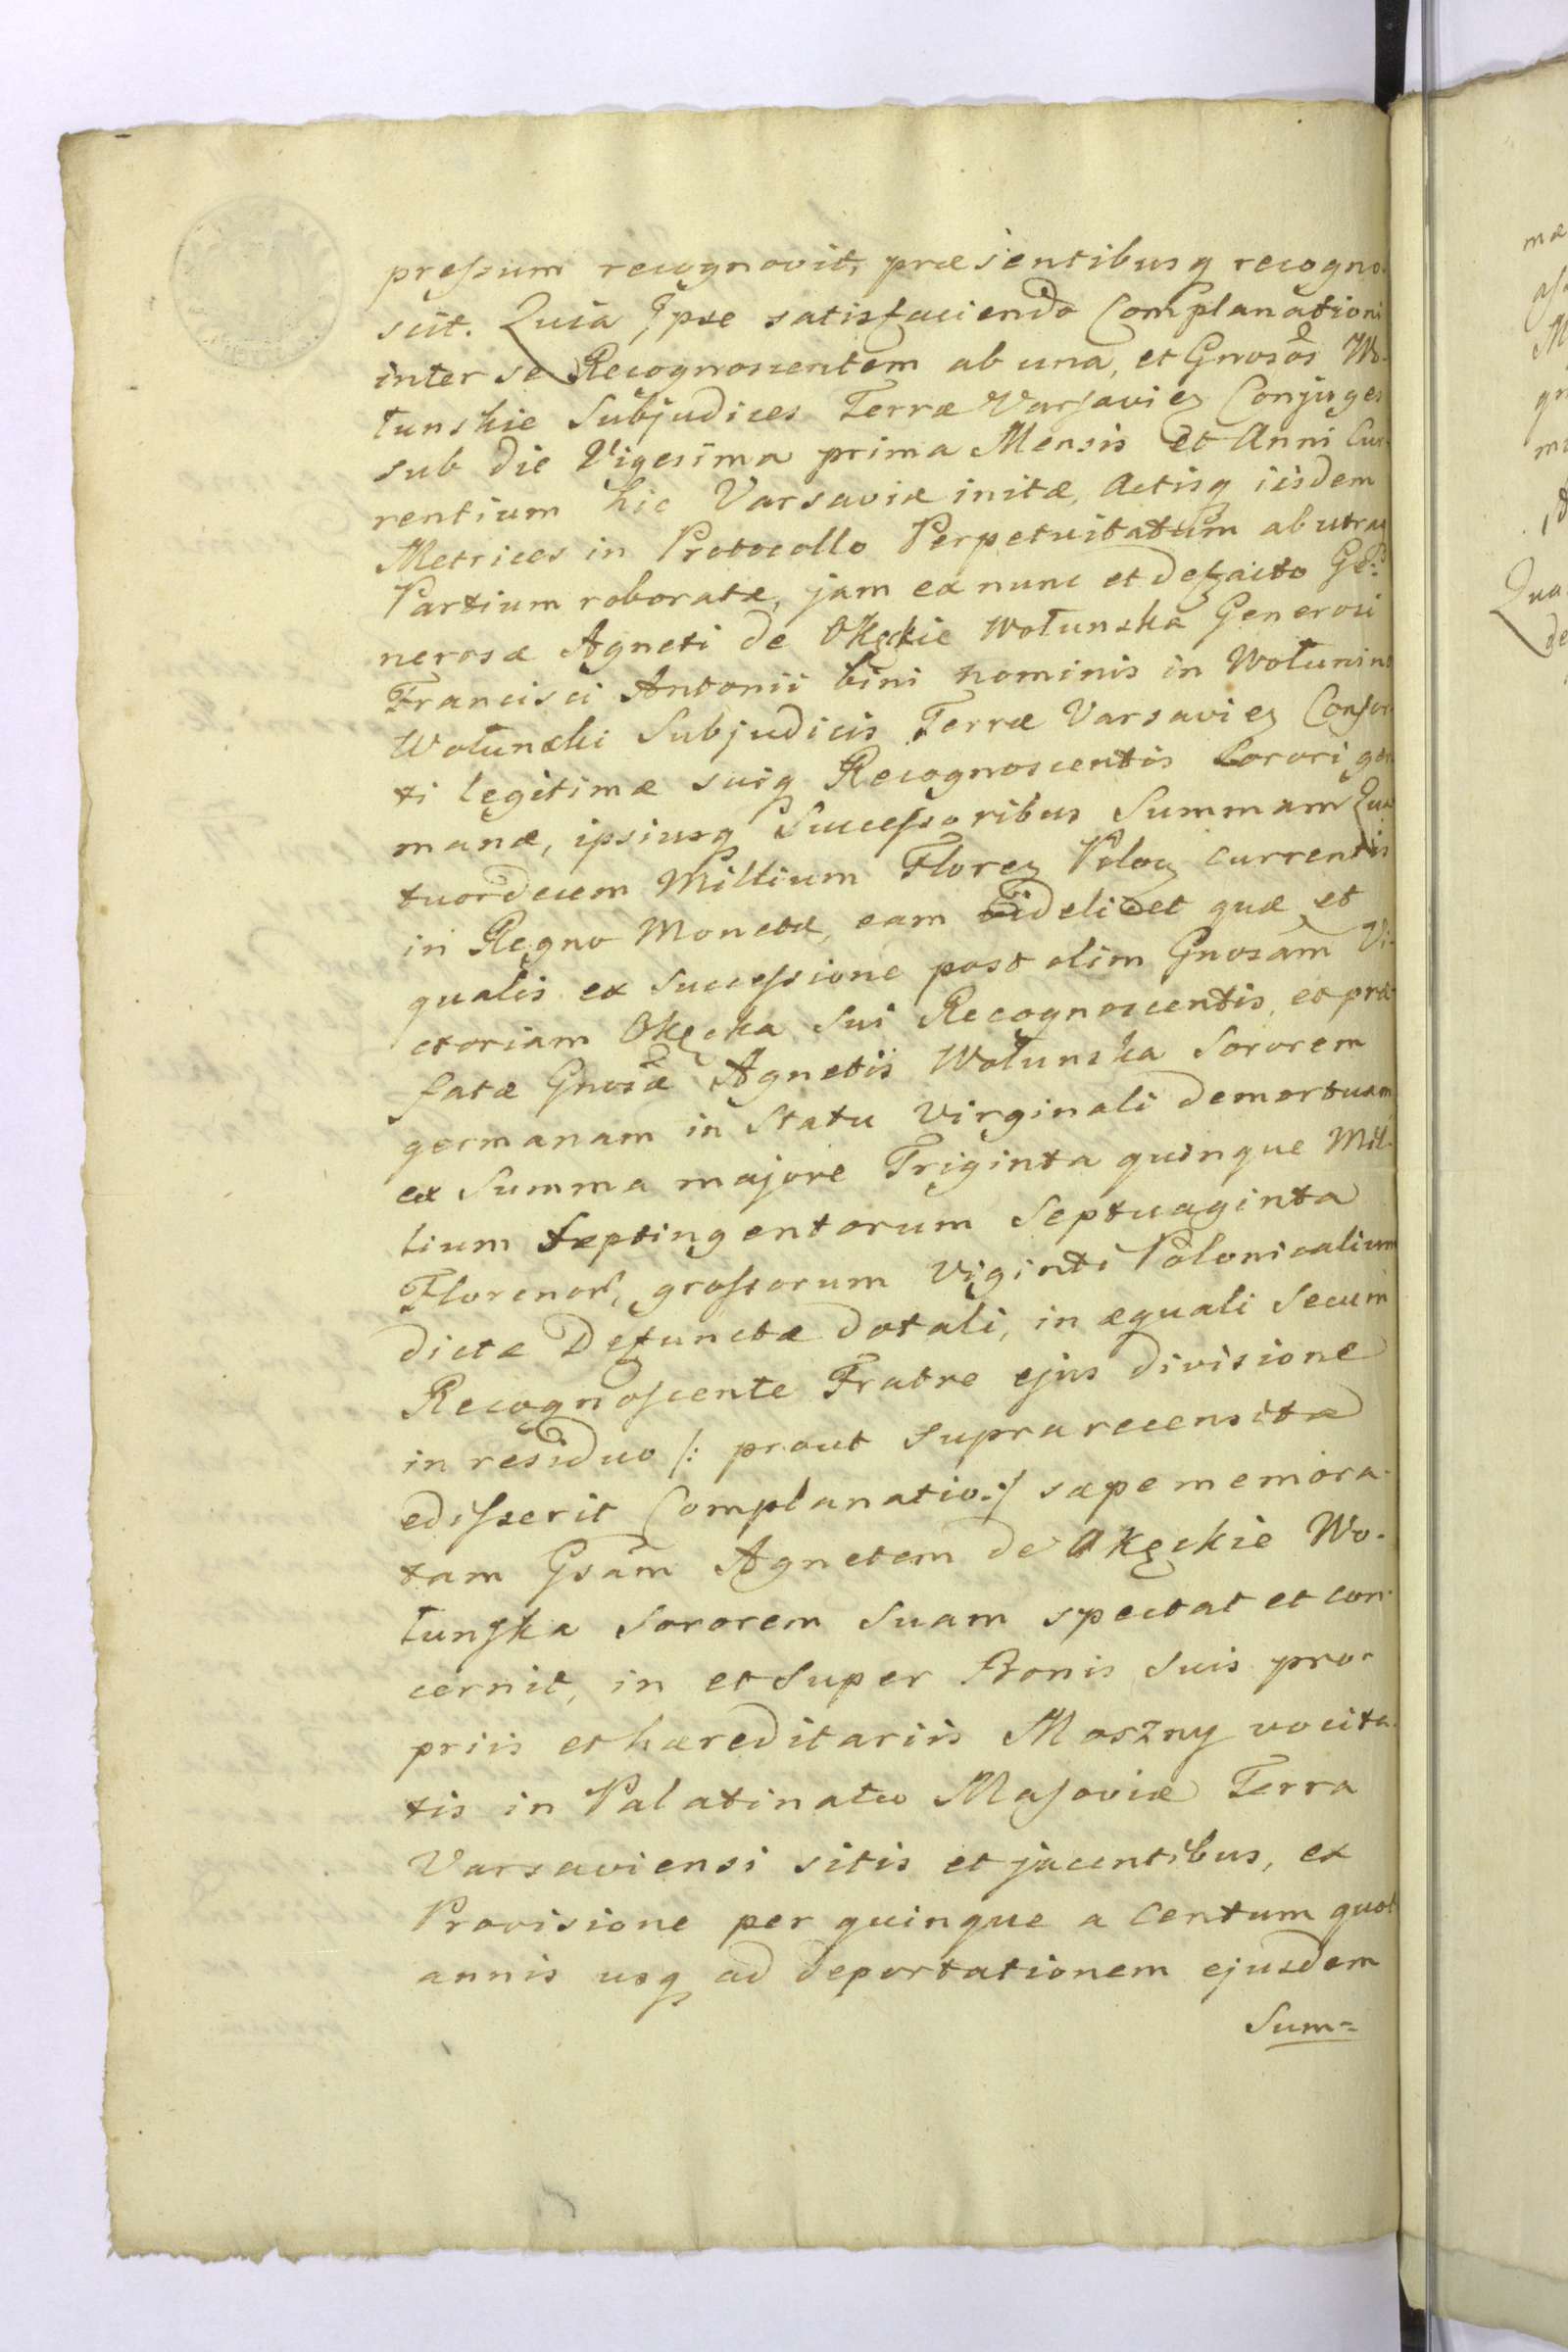 preſsum recognovit, præsentibusq recogno-
scit. Quia Ipse satisfaciendo Complanationi
inter se Recognoscentem ab una, et Gnosos Wo-
łunskie Subjudices Terræ Varſavien Conjuges
sub die Vigesima prima Mensis et Anni Cur-
rentium hic Varsaviæ initæ, Actisq iisdem
Metrices in Protocollo Perpetuitatum ab utraq
Partium roboratæ, jam ex nunc et defacto Ge-
nerosæ Agneti de Okęckie Wołunska Generosi
Francisci Antonii bini nominis in Wołunino
Wołunski Subjudicis Terræ Varsavien Conſor-
ti legitimæ suiq Recognoscentis Sorori ger-
manæ, ipsiusq Succeſsoribus Summam Qua-
tuordecem Millium Floren Polon currentis
in Regno Monetæ, eam videlicet quæ et
qualis ex Succeſsione post olim Gnosam Vi-
ctoriam Okęcka Sui Recognoscentis, et præ-
fatæ Gnosæ Agnetis Wołunska Sororem
germanam in Statu Virginali demortuam
ex Summa majore Triginta quinque Mil-
lium Septingentorum Septuaginta
Florenor, groſsorum viginti Polonicalium
dictæ Defunctæ dotali, in æquali Secum
Recognoſcente Fratre ejus divisione
in residuo /: prout Suprarecensita
ediſserit Complanatio :/ sæpememora-
tam Gsam Agnetem de Okęckie Wo-
łunſka Sororem Suam spectat et con-
cernit, in et Super Bonis Suis pro-
priis et hæreditariis Moszny vocita-
tis in Palatinatu Maſoviæ Terra
Varsaviensi sitis et jacentibus, ex
Provisione per quinque a Centum quot
annis usq ad deportationem ejusdem
Sum=